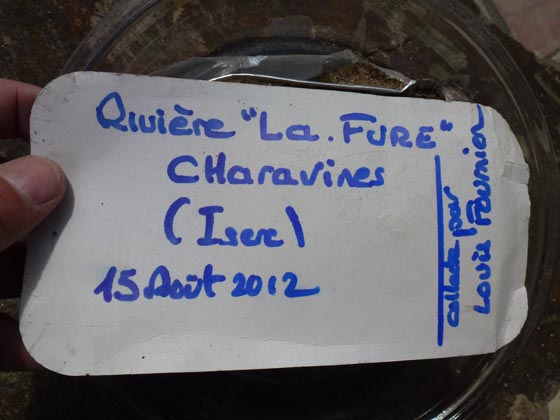 Rivière "La. FURE"
CHaravines
(Isere)
15 Août 2012
collecte par
Louis Fournier